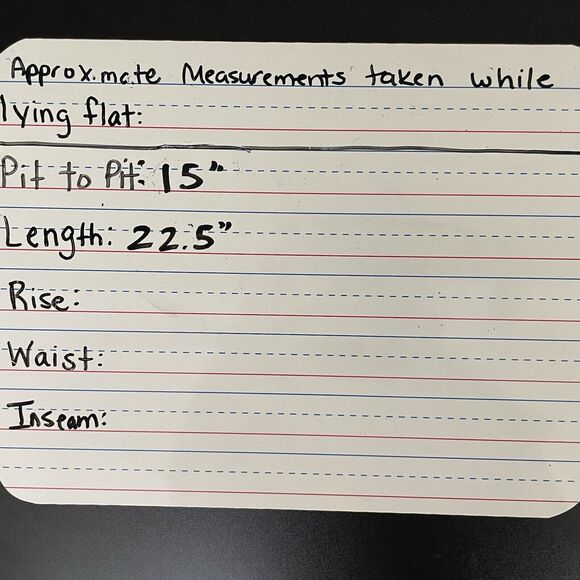 Approximate Measurements taken while
lying flat:
Pit to Pit: 15"
Length: 22.5"
Rise:
Waist:
Inseam: